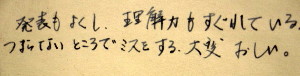 発表もよくし、理解力もすぐれている。
つまらないところでミスをする、大変おしい。